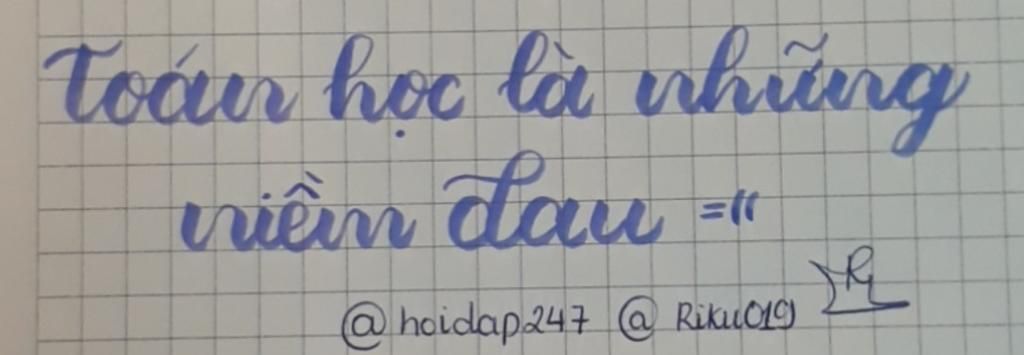 Toán học là những
niềm đau =((
@hoidap247 @Riku019